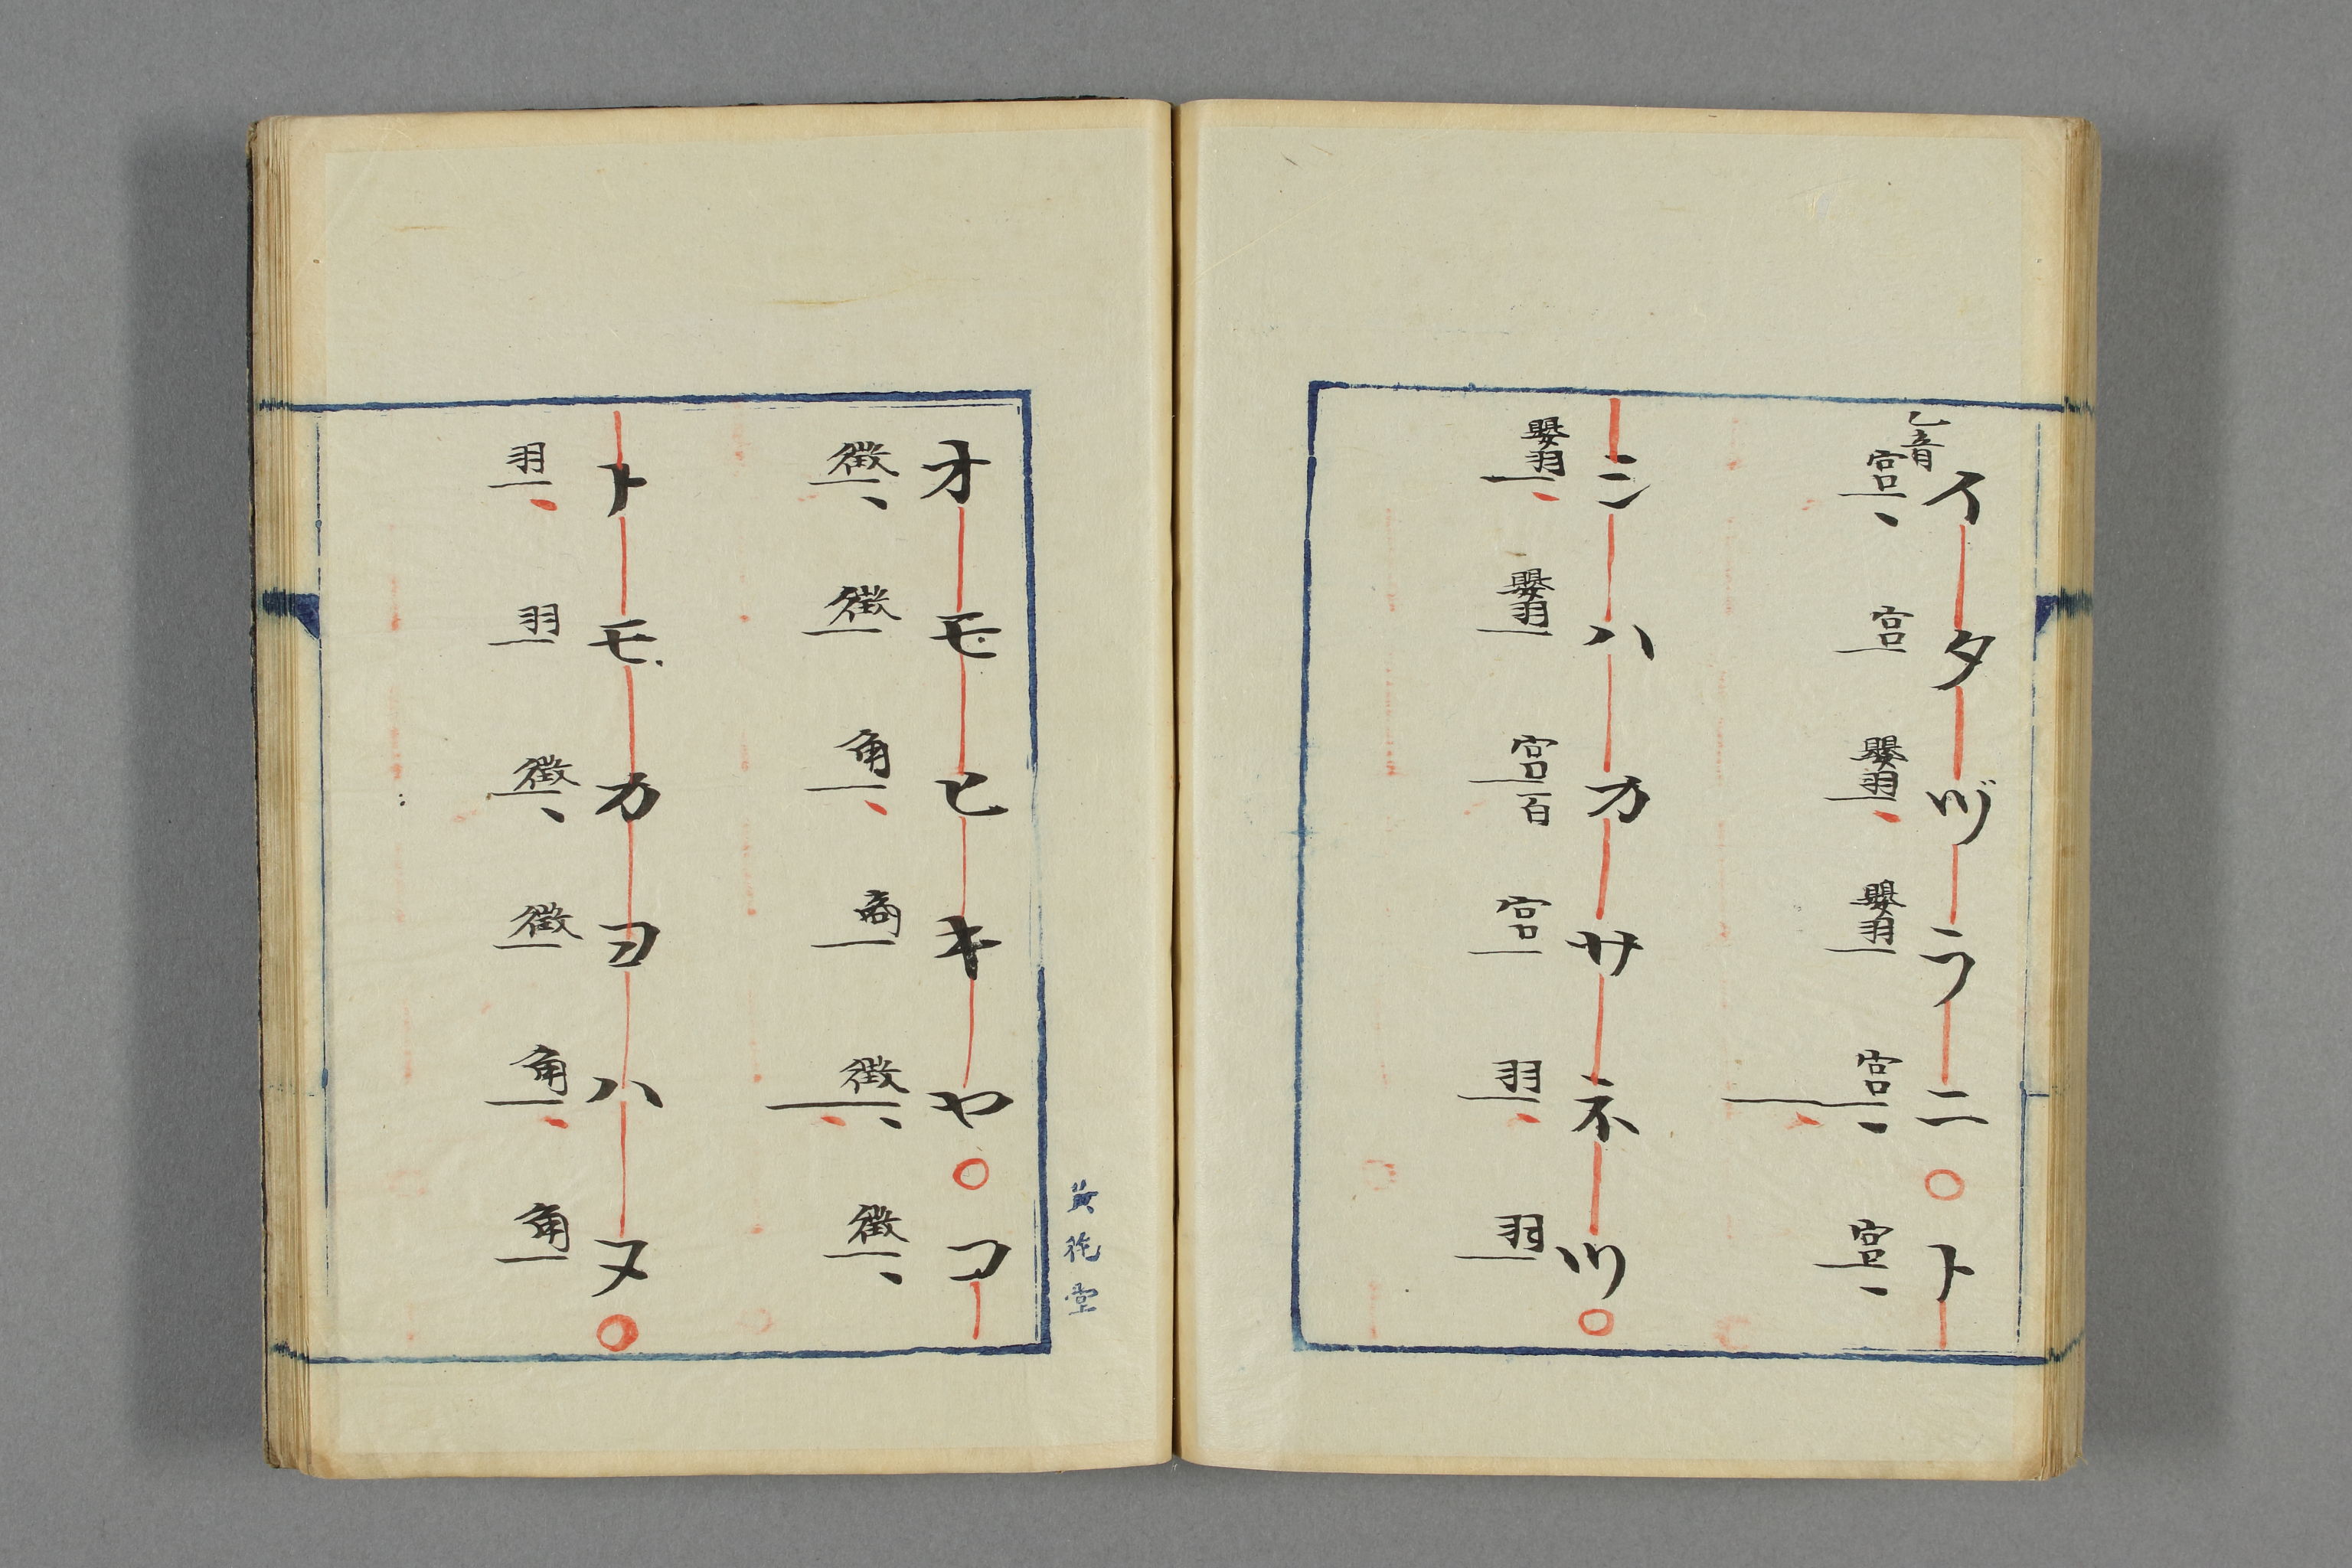 イタヅラニ○ト
乙音
宮、宮嬰羽、嬰羽宮、宮、
ニハカサネツ○
嬰羽、嬰羽宮百宮羽、羽
オモヒキヤ○コ
徴、徴角、商徴、、徴、
トモカヨハヌ○
羽、羽徴、徴角、角